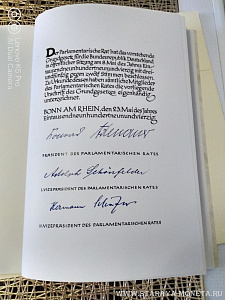 Der Parlamentarische Rat hat das vorstehende
Grundgesetz für die Bundesrepublik Deutschland
in öffentlicher Sitzung am 8. Mai des Jahres Ein-
tausendneunhundertneunundvierzig mit drei-
undfünfzig gegen zwölf Stimmen beschlossen.
Zu Urkunde dessen haben sämtliche Mitglieder
des Parlamentarischen Rates die vorliegende
Urschrift des Grundgesetzes eigenhändig
unterzeichnet.
BONN AM RHEIN, den 23. Mai des Jahres
Eintausendneunhundertneunundvierzig.
Konrad Adenauer
PRÄSIDENT DES PARLAMENTARISCHEN RATES
Adolph Schönfelder
I. VIZEPRÄSIDENT DES PARLAMENTARISCHEN RATES
Hermann Schäfer
II. VIZEPRÄSIDENT DES PARLAMENTARISCHEN RATES
Lenovo K5 Pro
AI Dual Camera
WWW.STARAYA-MONETA.RU